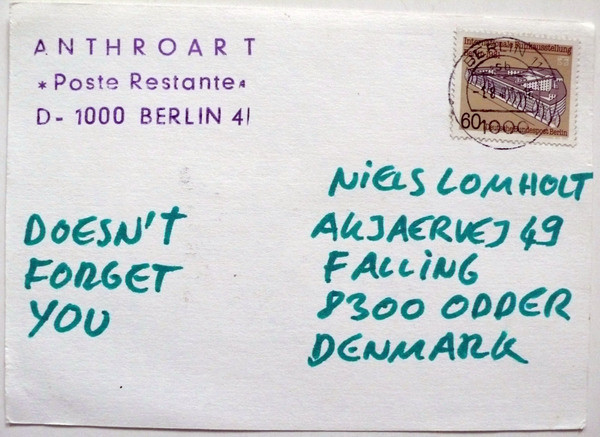 ANTHROART
*Poste Restante*
D-1000 BERLIN 41
Internationale Funkausstellung
60
Deutsche Bundespost Berlin
BERLIN 11
1000
NIELS LOMHOLT
AKJAERVEJ 49
FALLING
8300 ODDER
DENMARK
DOESN'T
FORGET
YOU